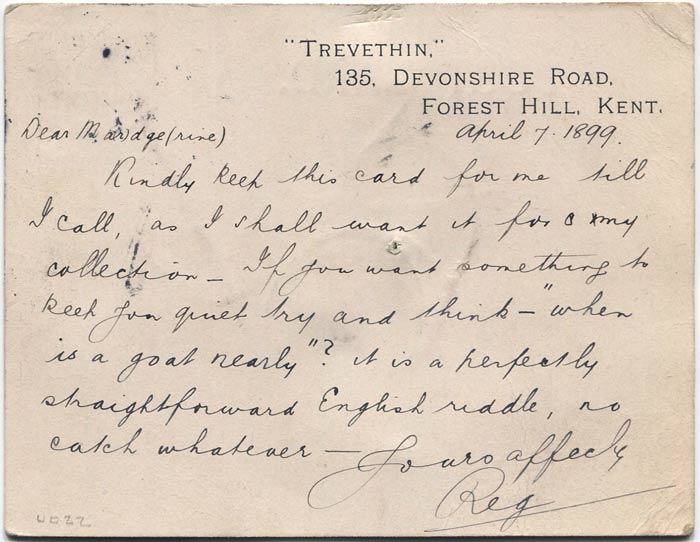 "TREVETHIN,"
135, DEVONSHIRE ROAD,
FOREST HILL, KENT.
April 7. 1899.
Dear Ma(r)dge(rine)
Kindly keep this card for me till
I call, as I shall want it for my
collection – If you want something to
keep you quiet try and think – "when
is a goat nearly"? it is a perfectly
straightforward English riddle, no
catch whatever – Yours affecly
Reg